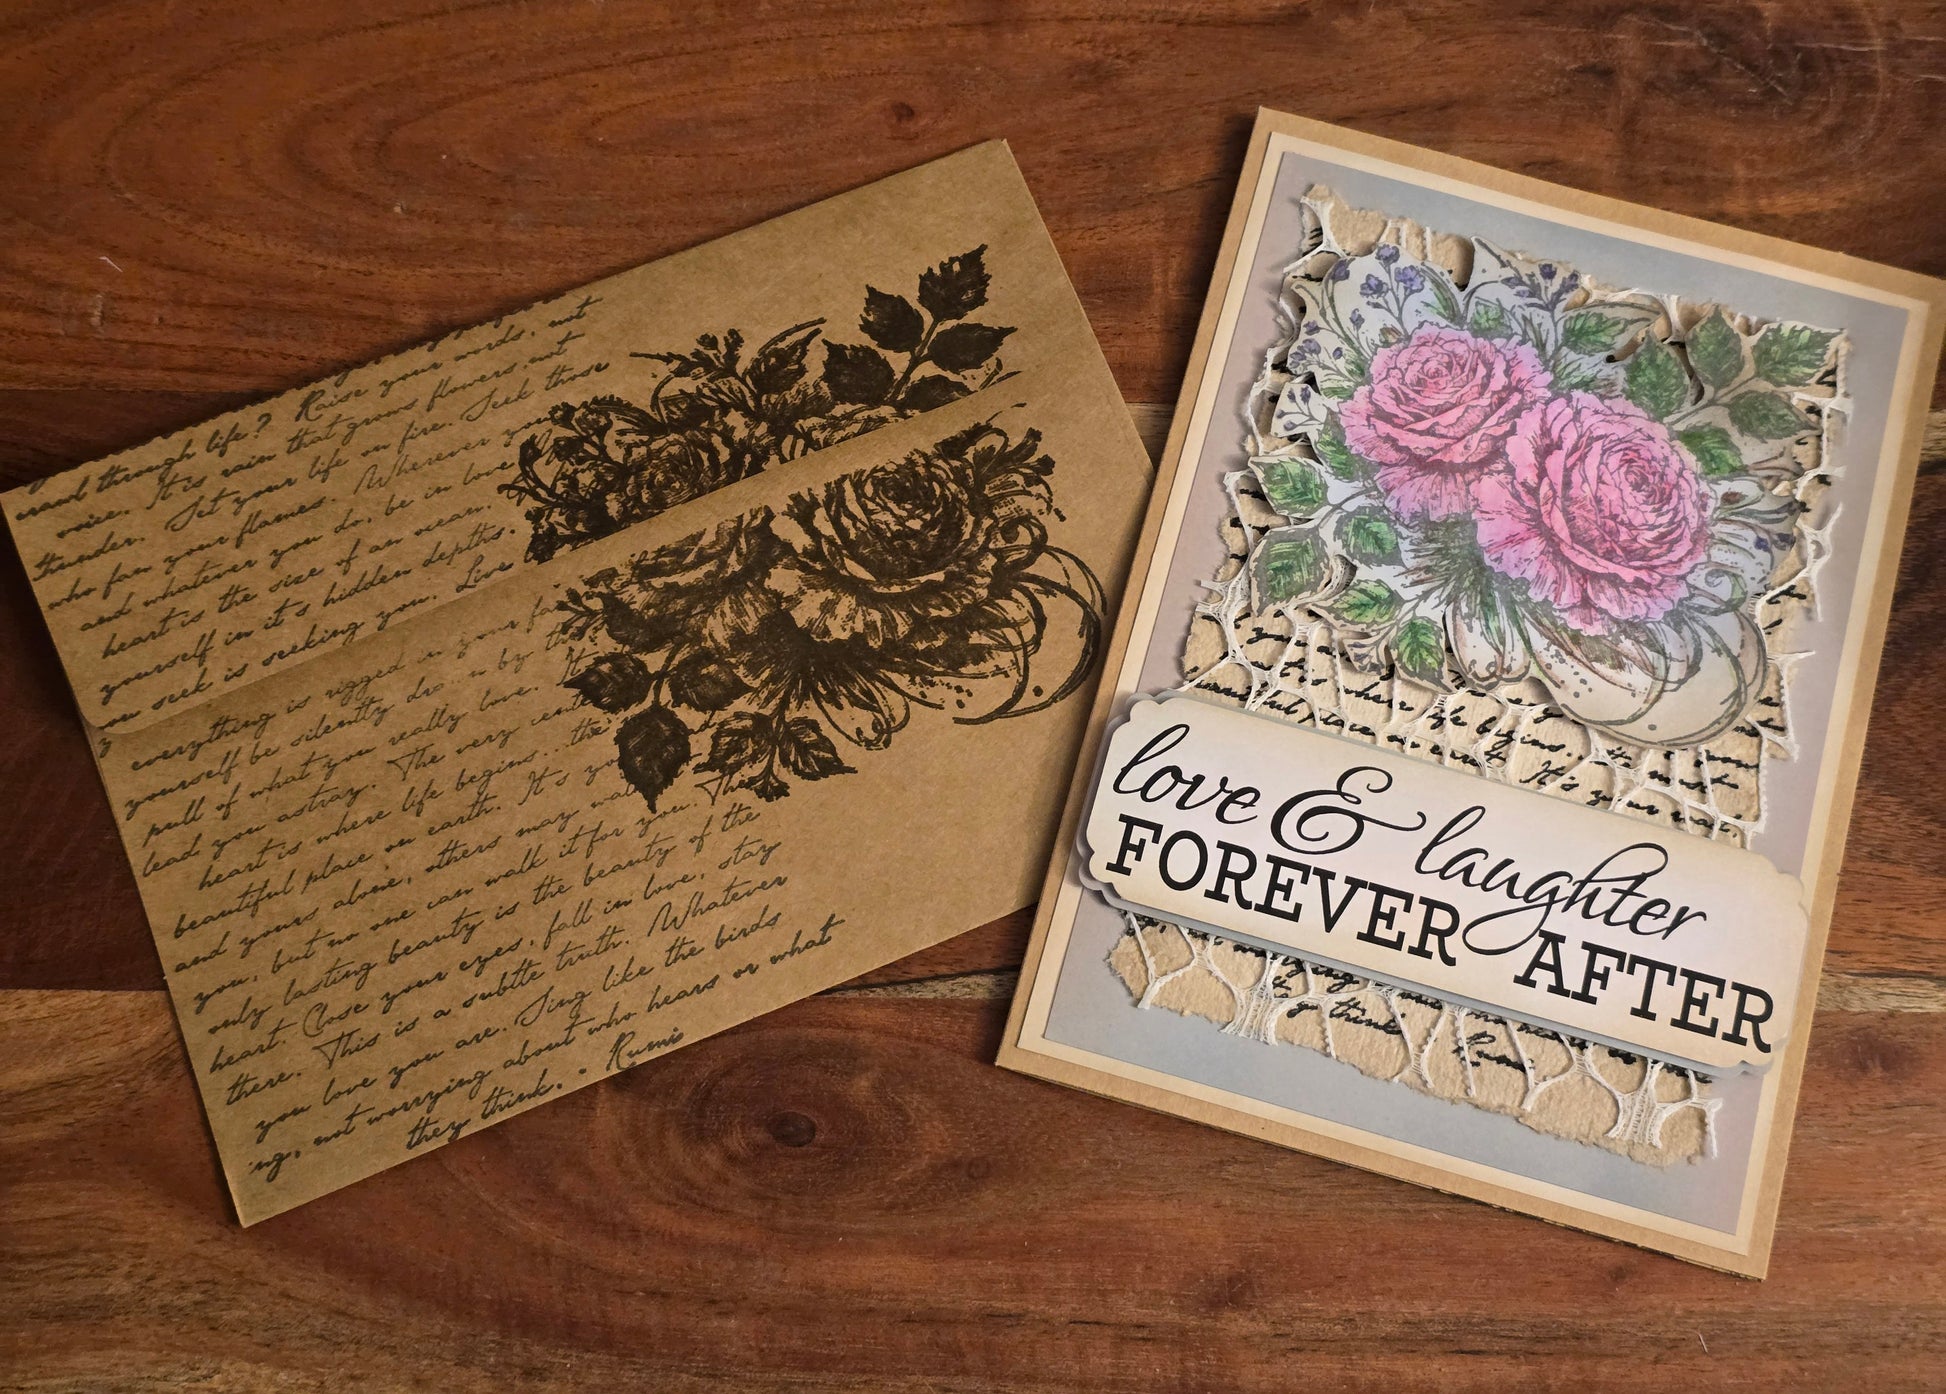 Raise your words, not
crawl through life?
voice. It is rain that grows flowers, not
thunder. Set your life on fire. Seek those
who fan your flames. Wherever you
and whatever you do, be in love
heart is the size of an ocean.
yourself in it's hidden depths.
you seek is seeking you. Live
everything is rigged in your
yourself be silently by the
pull of what you really love. It
lead you astray. The very center
heart is where life begins...the
beautiful place on earth. It's
and yours alone, others may
you, but no one can walk it for you. The
only lasting beauty is the beauty of the
heart. Close your eyes, fall in love, stay
there. This is a subtle truth. Whatever
you love you are. Sing like the birds
ing, not worrying about who hears or what
they think. - Rumi
is where life begins...
beautiful place on earth. It's your road,
love & laughter
FOREVER AFTER
think
Rumi